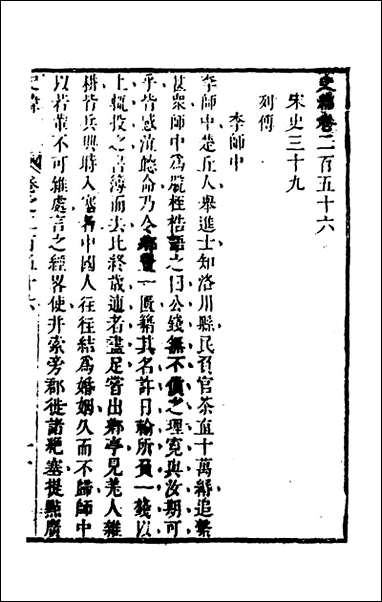 史緯卷二百五十六
宋史三十九
列傳
李師中
李師中楚丘人舉進士知洛川縣民召官茶直十萬緡追繫
甚衆師中為脫桎梏語之曰公錢無不償之理寬與汝期可
乎皆感泣聽命乃令鄉置一匱籍其名許日輸所負一錢以
上輒投之書簿而去比終歲逋者盡足嘗出鄉亭見羌人雜
耕皆兵興時入塞者中國人往往結為婚姻久而不歸師中
以若輩不可雜處言之經畧使并索旁郡徙諸絶塞提點廣
史緯 卷之二百五十六 一